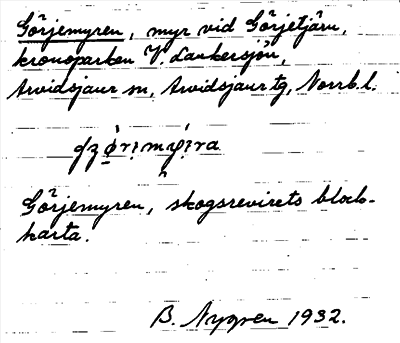 Görjemyren, myr vid Görjetjärn,
kronoparken V. Lankersjön,
Arvidsjaur sn, Arvidsjaur tg, Norrb. l.
Görjemyren, skogsrevirets block-
karta.
B. Nygren 1932.